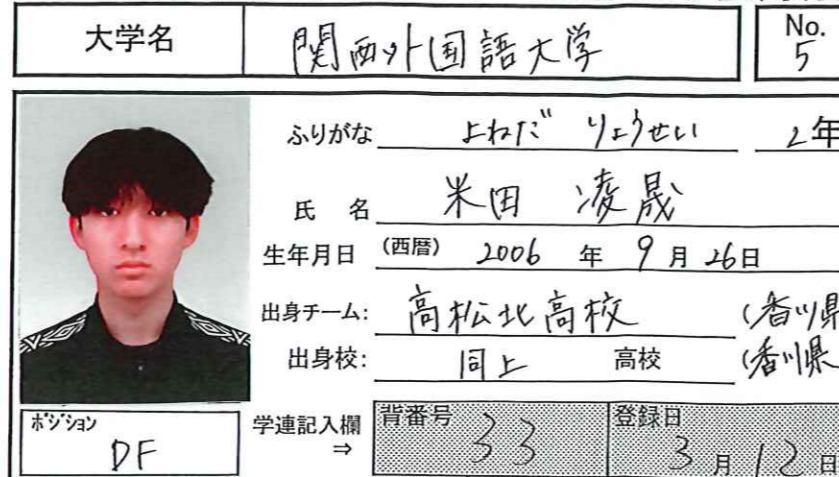 大学名 関西外国語大学 No. 5
ふりがな よねだ りょうせい 2年
氏 名 米田 凌晟
生年月日 (西暦) 2006 年 9 月 26 日
出身チーム: 高松北高校 (香川県
出身校: 同上 高校 (香川県
ポジション DF
学連記入欄 ⇒
背番号 33
登録日 3 月 12 日